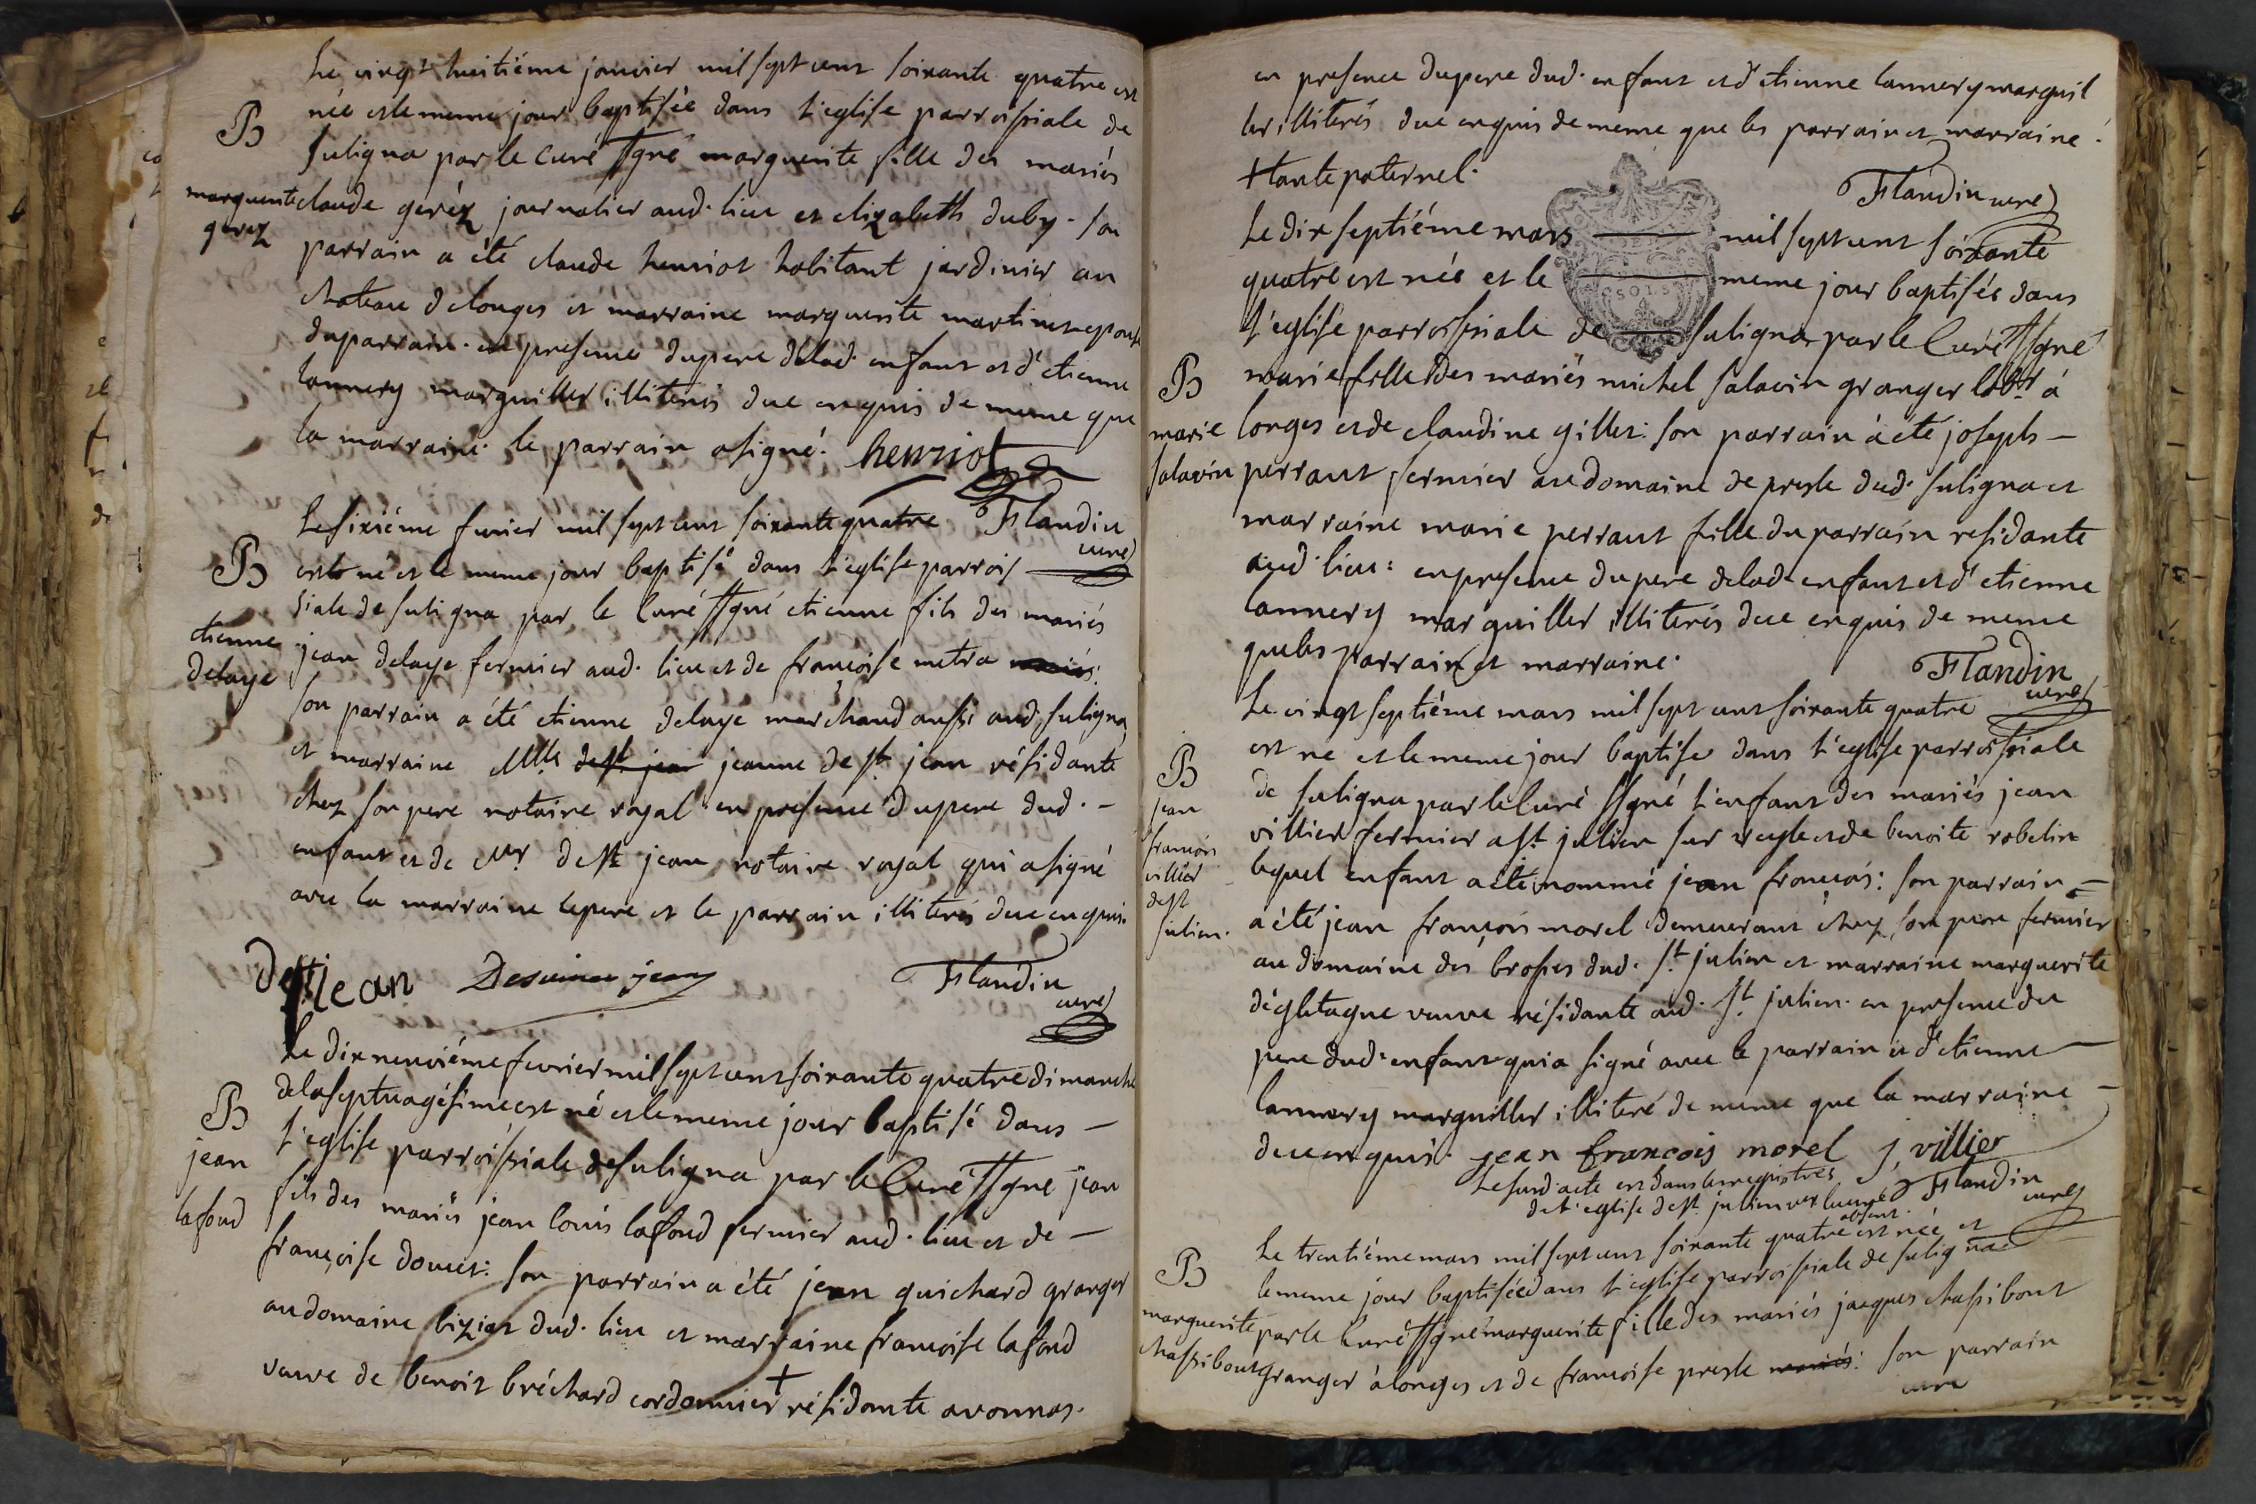 Le vingt huitiéme janvier mil sept cent soixante quatre est
née et le meme jour baptisée dans l'eglise parroissiale de
B
suligna par le curé ssgné marguerite fille des mariés
marguerite gerez
claude geréz journalier aud. lieu et elizabeth duby. son
parrain a été claude henriot habitant jardinier au
chateau de longes et marraine marguerite martinet epouse
du parrain. en presence du pere de lad. enfant et d'etienne
lannery marguiller illiterés de ce enquis de meme que
la marraine. le parrain a signé. henriot
Flandin curé
Le sixiéme fevrier mil sept cent soixante quatre
B
est né et le meme jour baptisé dans l'eglise parrois
siale de suligna par le curé ssgné etienne fils des mariés
etienne delaye
jean delaye fermier aud. lieu et de françoise metra mariés:
son parrain a été etienne delaye marchand aussi aud. suligna
et marraine Mlle de st. jean jeanne de st. jean résidante
chez son pere notaire royal en presence du pere dud. -
enfant et de Mr de st jean notaire royal qui a signé
avec la marraine le pere et le parrain illiterés de ce enquis
de st jean Desainct jean Flandin curé
Le dix neuviéme fevrier mil sept cent soixante quatre dimanche
de la septuagésime est né et le meme jour baptisé dans -
B
l'eglise parroissiale de suligna par le curé ssgné jean
jean
lafond
fils des mariés jean louis lafond fermier aud. lieu et de -
françoise doucet: son parrain a été jean guichard granger
au domaine biziat dud. lieu et marraine françoise lafond
veuve de benoit bréchard cordonnier + résidante a vonnas.
en presence du pere dud. enfant et d'etienne lannery marguil
ler illiterés de ce enquis de meme que les parrain et marraine.
+ tante paternel.
Flandin curé
Le dix septiéme mars mil sept cent soixante
quatre est née et le meme jour baptisée dans
l'eglise parroissiale de suligna par le curé ssgné
B
marie fille des mariés michel salavin granger labr. à
marie
longes et de claudine gillet: son parrain à été joseph -
salavin
perraut fermier au domaine de presle dud. suligna et
marraine marie perraut fille du parrain residante
aud. lieu: en presence du pere de lad. enfant et d'etienne
lannery marguiller illiterés de ce enquis de meme
que les parrain et marraine.
Flandin curé
Le vingt septiéme mars mil sept cent soixante quatre
est ne et le meme jour baptisé dans l'eglise parroissiale
B
jean
françois
villier
de st
julien.
de suligna par le curé ssgné l'enfant des mariés jean
villier fermier a st. julien sur veyle et de benoite robelin
lequel enfant a été nommé jean françois: son parrain -
a été jean françois morel demeurant chez son pere fermier
au domaine des brosses dud. st. julien et marraine marguerite
dégletagne veuve résidante aud. st. julien. en presence du
pere dud. enfant qui a signé avec le parrain et d'etienne
lannery marguiller illiteré de meme que la marraine -
de ce enquis. jean francois morel j. villier
Le susd. acte est dans les registres
de l'eglise de st. julien vu le curé absent.
Flandin curé
Le trentiéme mars mil sept cent soixante quatre est née et
B
le meme jour baptisée dans l'eglise parroissiale de suligna
marguerite
par le curé ssgné marguerite fille des mariés jacques chassibout
chassibout
granger à longes et de françoise presle mariés: son parrain
curé